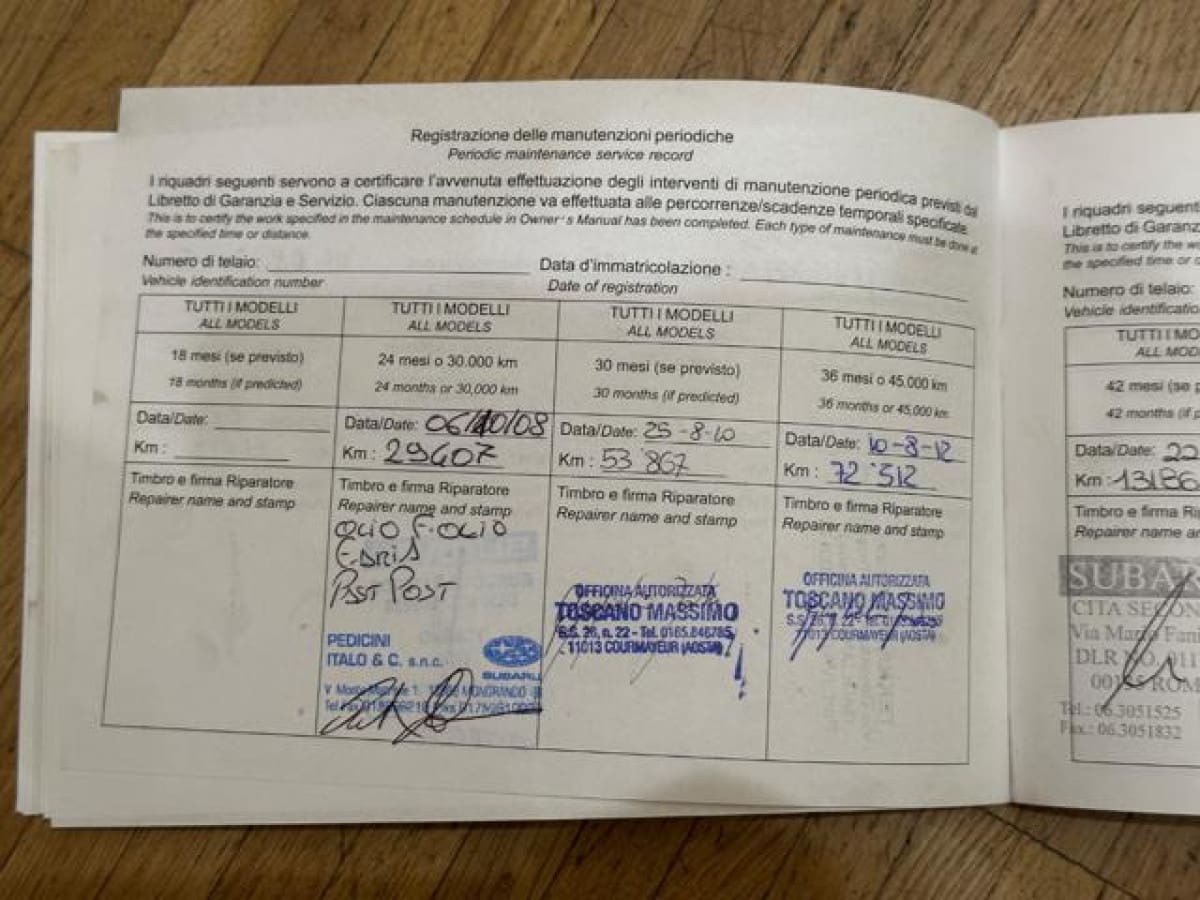 Registrazione delle manutenzioni periodiche
Periodic maintenance service record
I riquadri seguenti servono a certificare l'avvenuta effettuazione degli interventi di manutenzione periodica previsti dal
Libretto di Garanzia e Servizio. Ciascuna manutenzione va effettuata alle percorrenze/scadenze temporali specificate.
This is to certify the work specified in the maintenance schedule in Owner's Manual has been completed. Each type of maintenance must be done at
the specified time or distance.
Numero di telaio: Data d'immatricolazione :
Vehicle identification number Date of registration
TUTTI I MODELLI
ALL MODELS
18 mesi (se previsto)
18 months (if predicted)
Data/Date:
Km :
Timbro e firma Riparatore
Repairer name and stamp
TUTTI I MODELLI
ALL MODELS
24 mesi o 30.000 km
24 months or 30,000 km
Data/Date: 06/10/08
Km : 29607
Timbro e firma Riparatore
Repairer name and stamp
OLIO F. OLIO
POST
PEDICINI
ITALO & C. s.n.c.
SUBARU
MONGRANDO
TUTTI I MODELLI
ALL MODELS
30 mesi (se previsto)
30 months (if predicted)
Data/Date: 25-8-10
Km : 53'867
Timbro e firma Riparatore
Repairer name and stamp
OFFICINA AUTORIZZATA
TOSCANO MASSIMO
S.S. 26, n. 22 - Tel. 0165.846785
11013 COURMAYEUR (AOSTA)
TUTTI I MODELLI
ALL MODELS
36 mesi o 45.000 km
36 months or 45,000 km
Data/Date: 10-8-12
Km : 72'512
Timbro e firma Riparatore
Repairer name and stamp
OFFICINA AUTORIZZATA
TOSCANO MASSIMO
S.S. 26, n. 22 - Tel.
11013 COURMAYEUR (AOSTA)
I riquadri seguent
Libretto di Garanz
This is to certify the w
the specified time or
Numero di telaio:
Vehicle identificatio
TUTTI I MO
ALL MOD
42 mesi (se p
42 months (if p
Data/Date: 22
Km : 13186
Timbro e firma Rip
Repairer name an
SUBAR
CITA SECON
Via Mario Fan
DLR NO. 011
00155 ROM
Tel.: 06.3051525
Fax.: 06.3051832